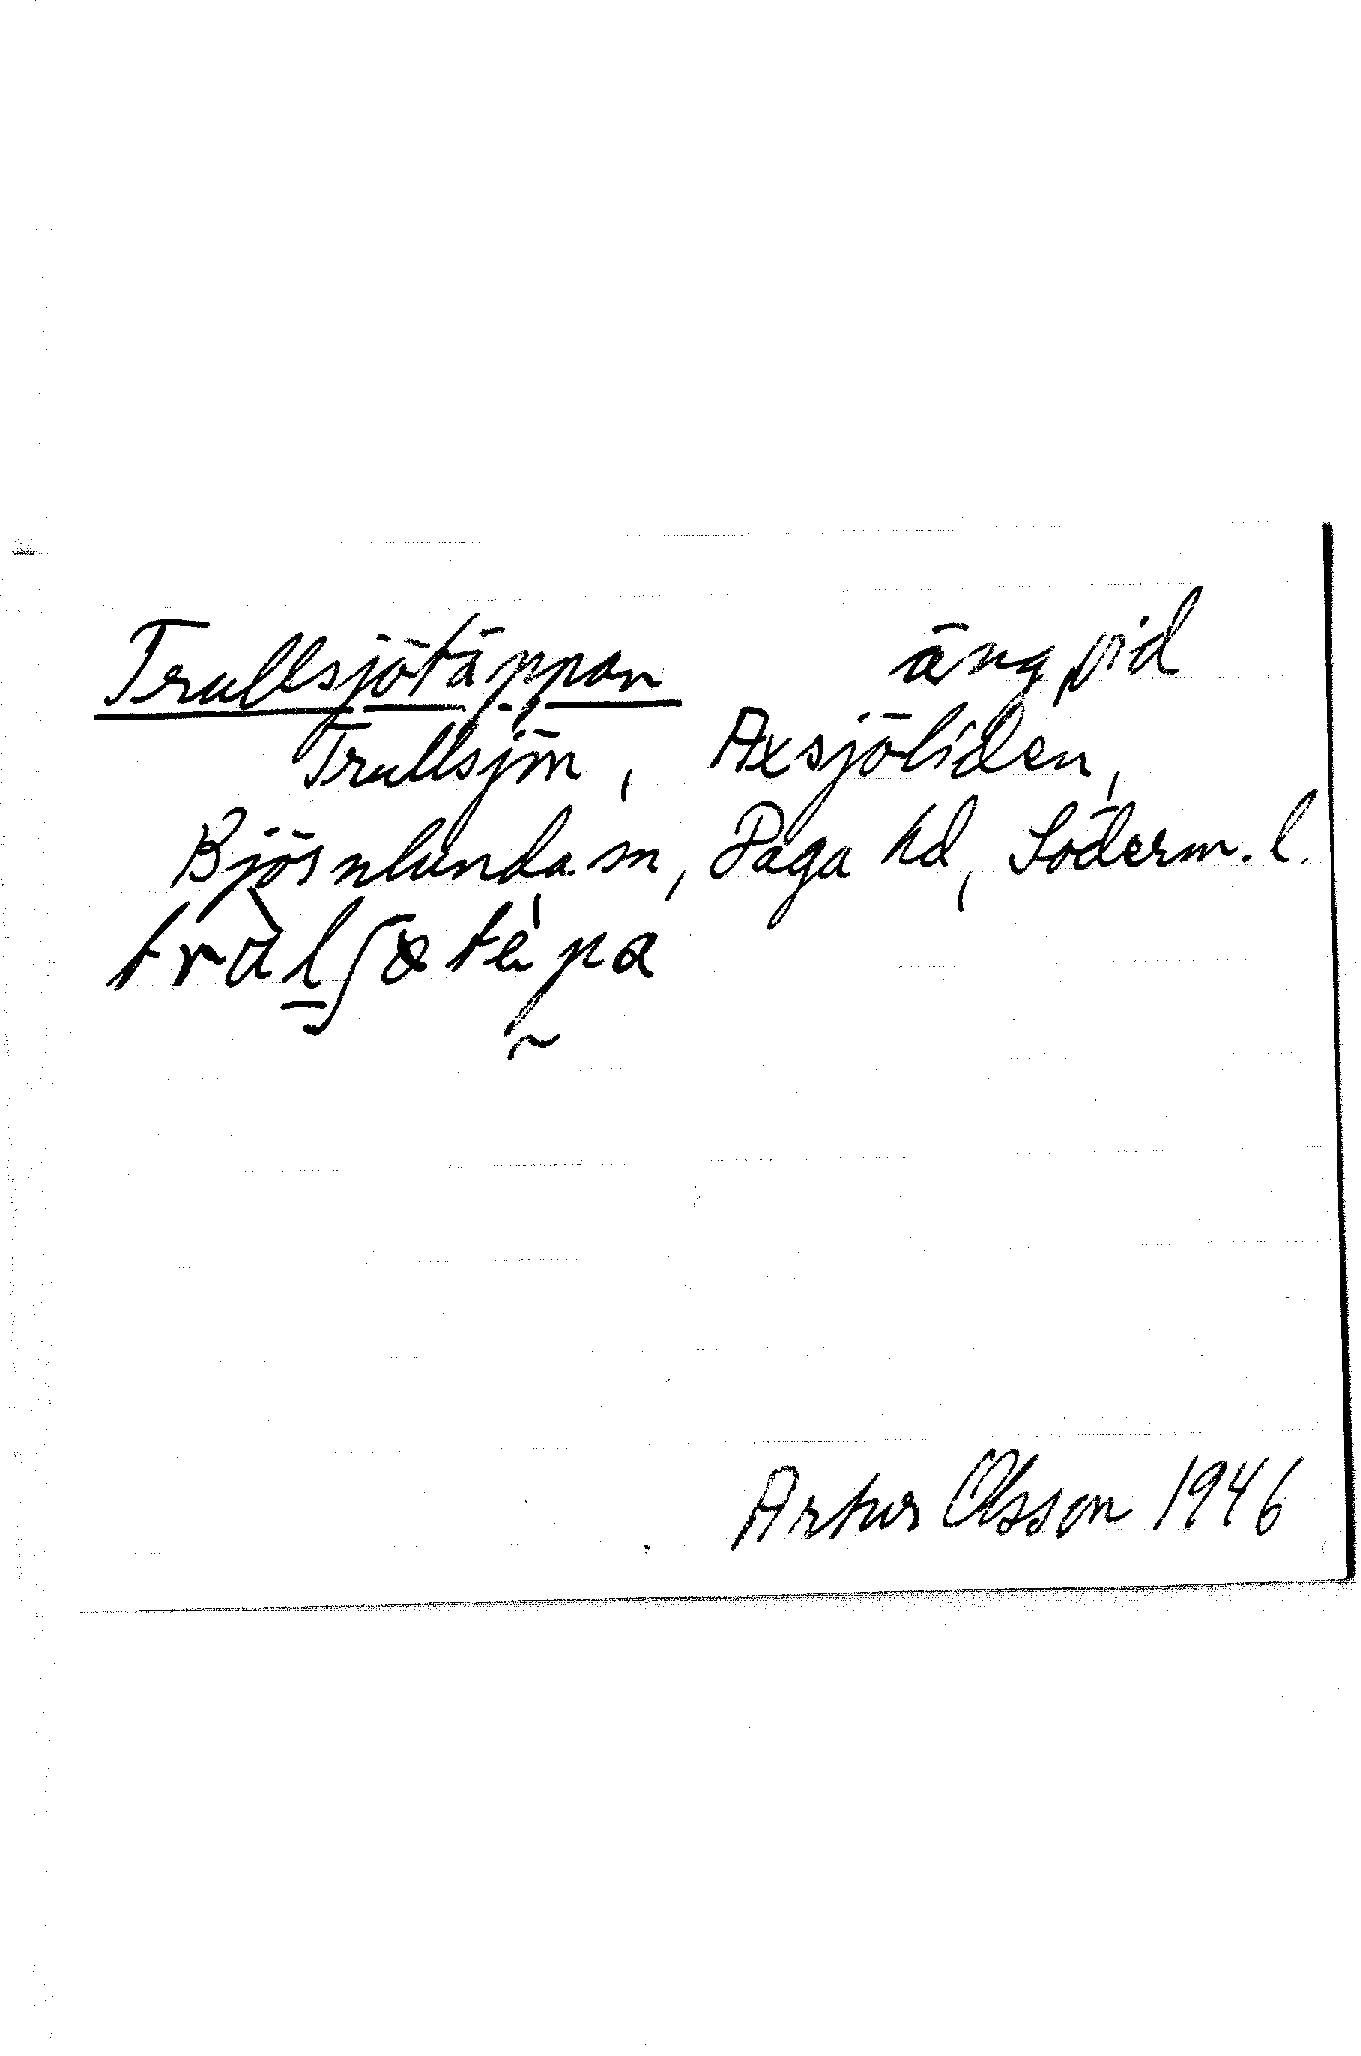 Trullsjötäppan äng vid
Trullsjön, Axsjöliden,
Björnlunda sn, Daga hd, Söderm. l.
Artur Olsson 1946